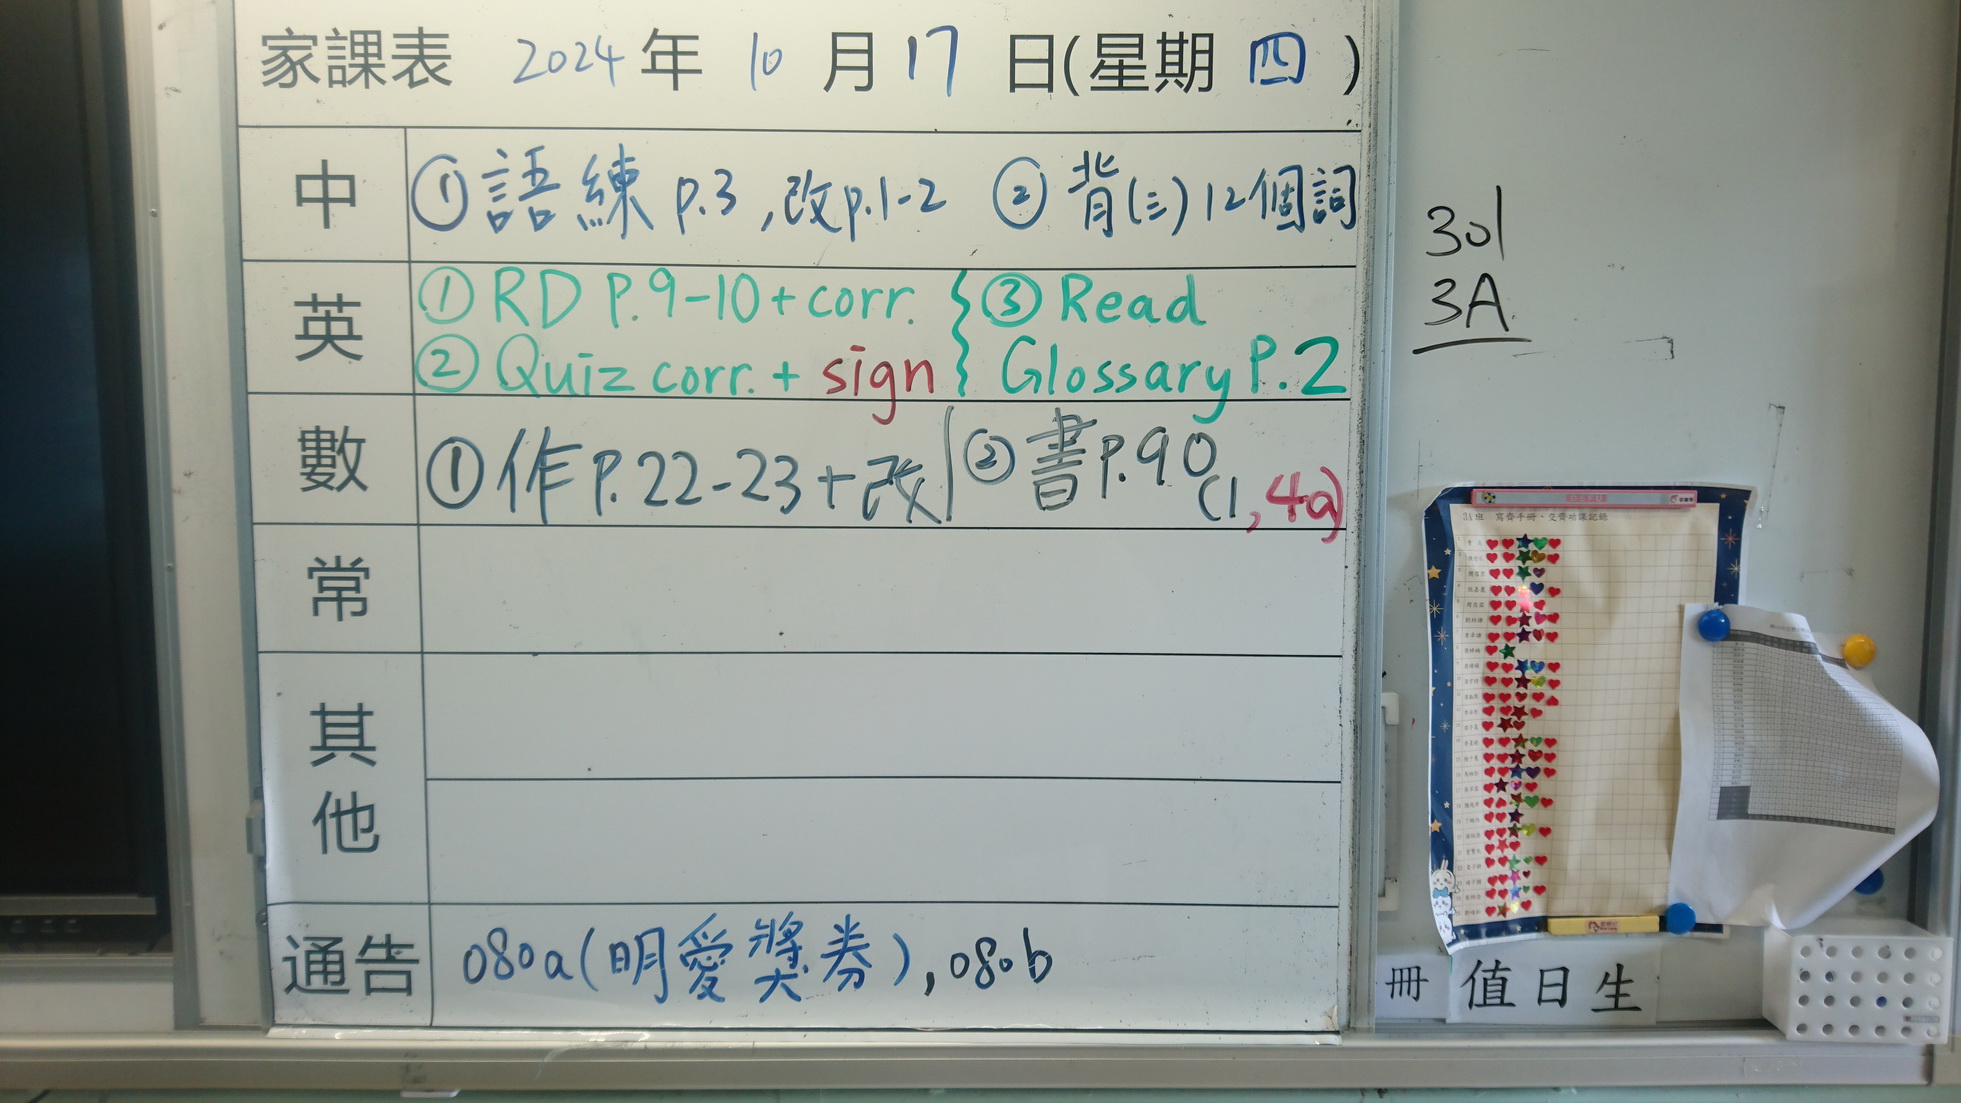 家課表 2024年 10月17日(星期四)
中 ①語練 p.3,改p.1-2 ②背(三)12個詞
英 ①RD P.9-10+corr. ③Read
②Quiz corr.+ sign Glossary P.2
數 ①作P.22-23+改 ②書P.90(1,4a)
常
其他
通告 080a(明愛獎券),080b
301
3A
3A班 寫齊手冊、交齊功課記錄
冊 值日生